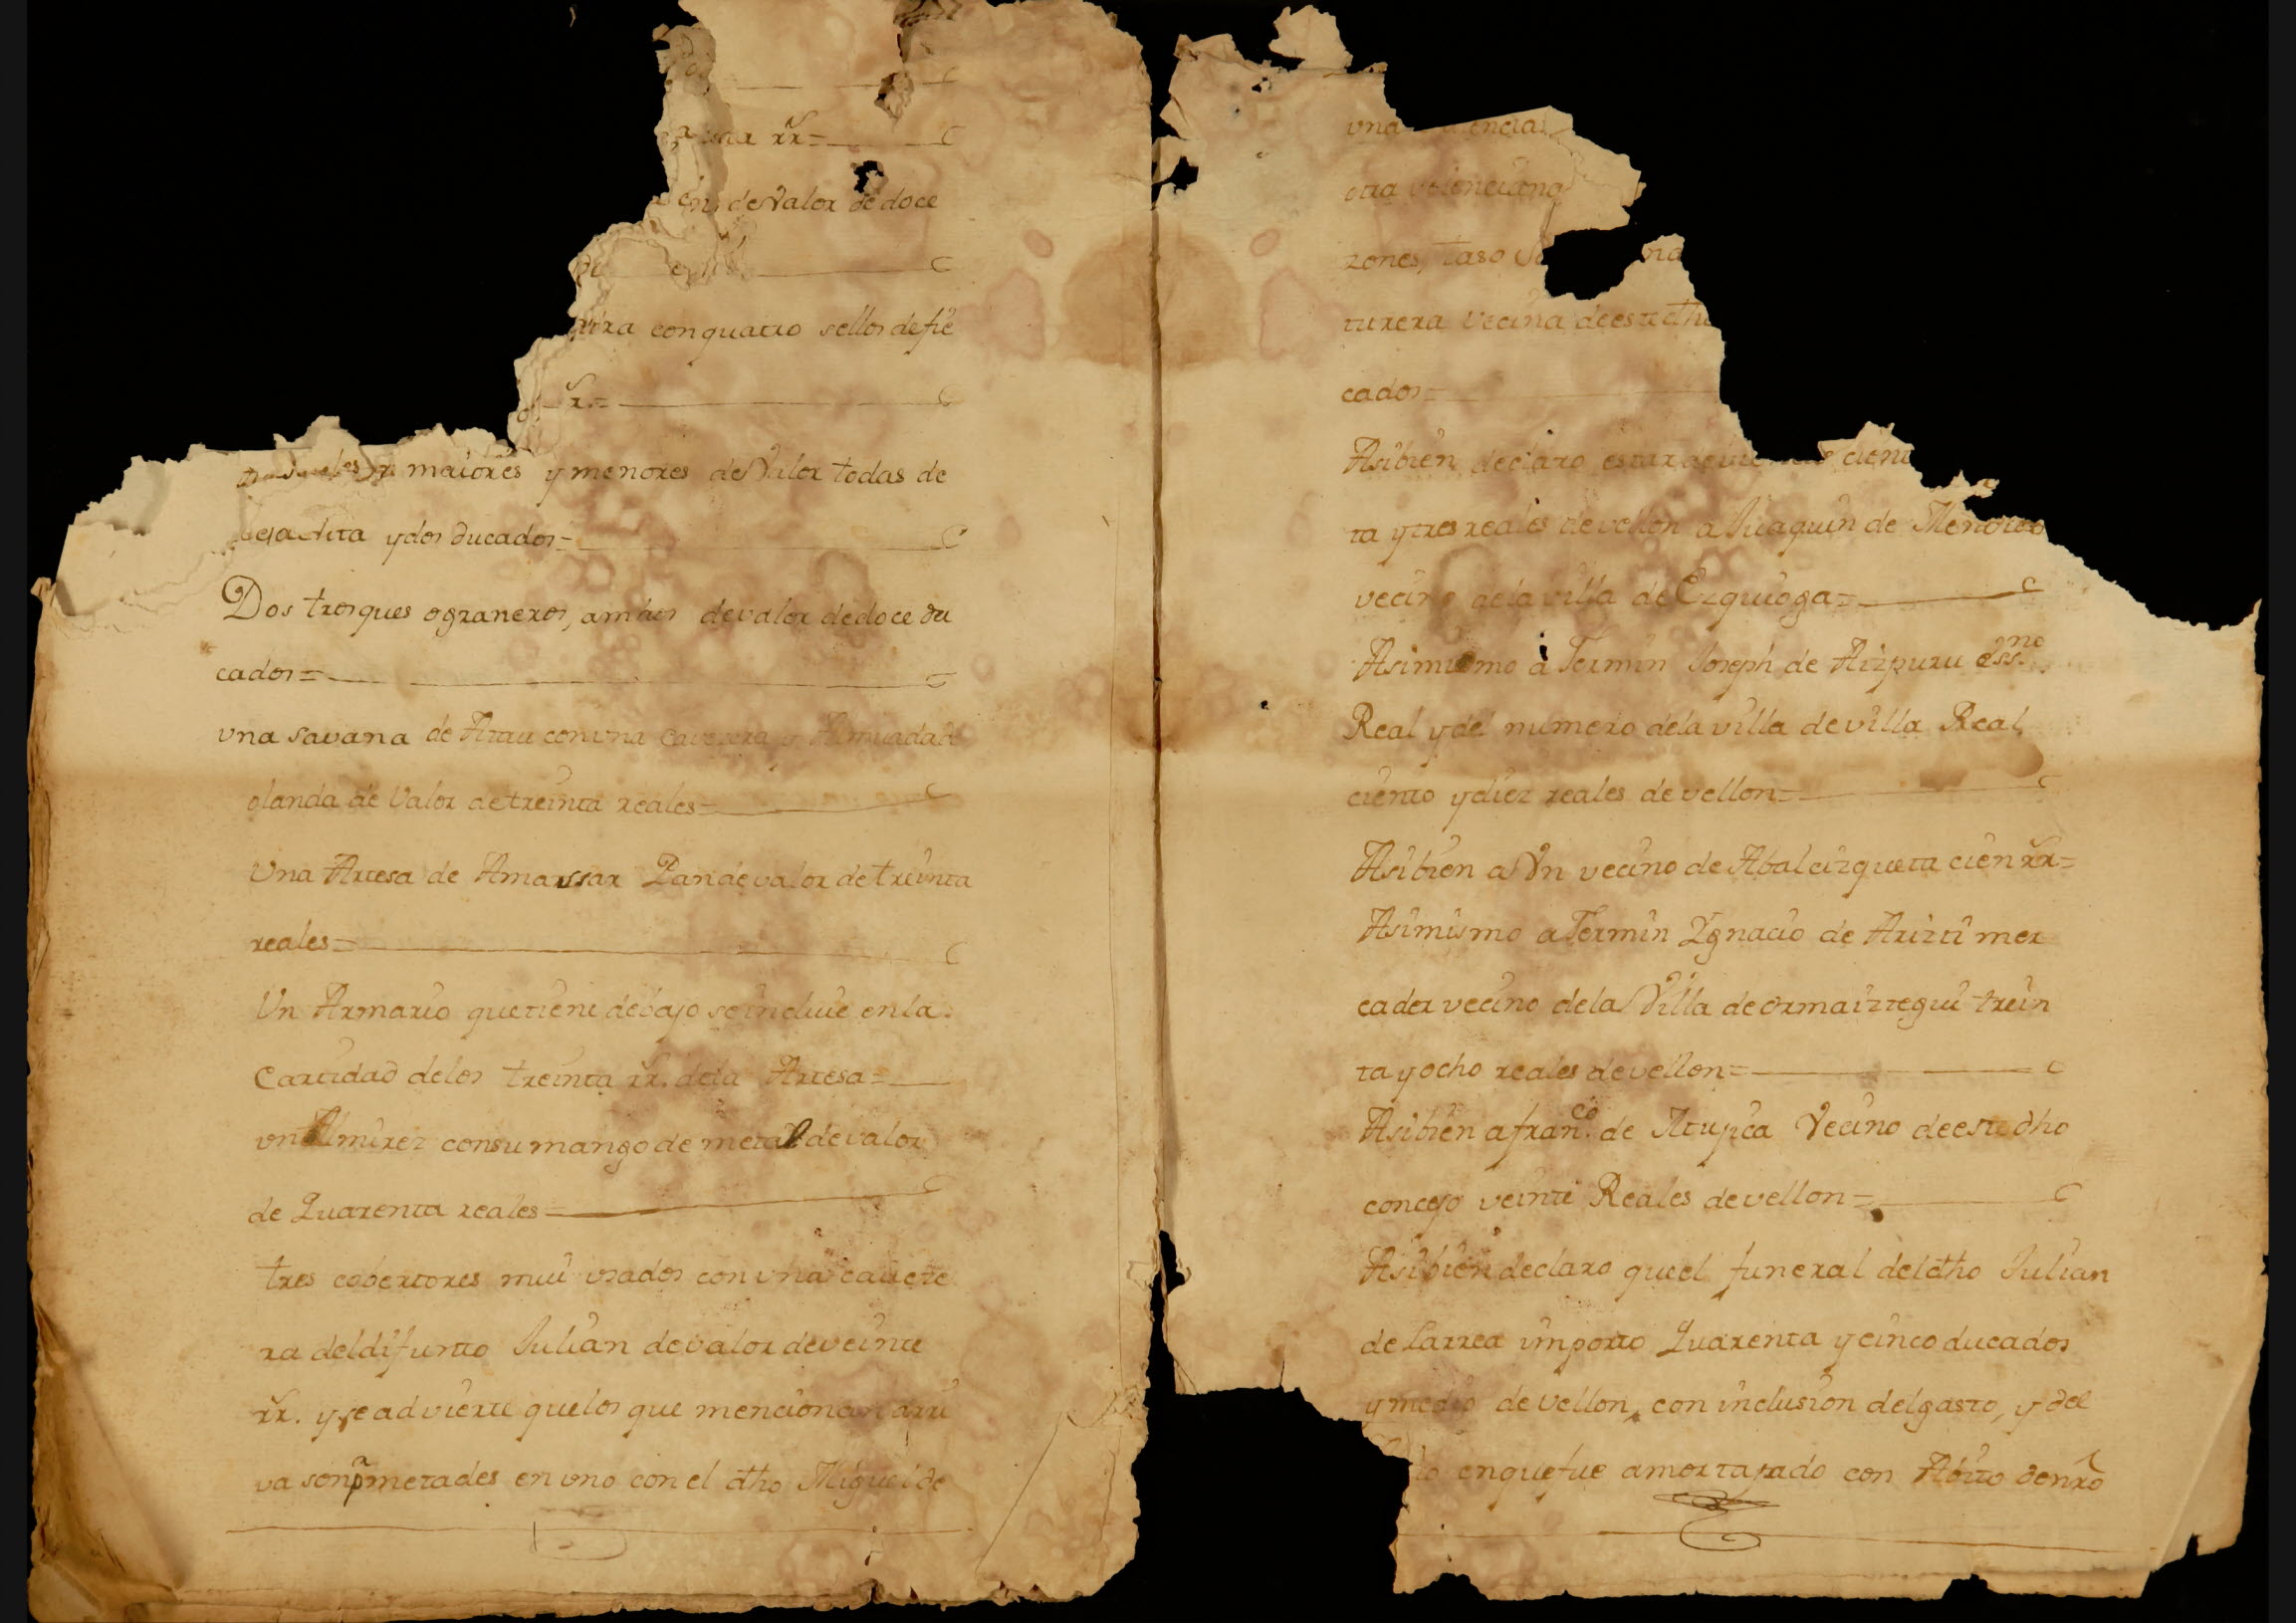 rr=
de Valor de doce
con quatro sellos de fie
r.=
maiores y menores de Valor todas de
y dos ducados=
Dos trosques o graneros, amàs de valor de doce du
cados=
vna savana de Atau con vna y Almuada d
olanda de Valor de treinta reales=
Una Artesa de Amassar Pan de valor de treinta
reales=
Un Armario que tiene debajo se incluie en la
Cantidad de los treinta rr. de la Artesa=
vn Almirez con su mango de metal de valor
de Quarenta reales=
tres cobertores mui vsados con vna caueze
ra del difunto Julian de valor de veinte
rr. y se advierte que los que mencionan arri
va son pr metades en vno con el dho Miguel de
vna
otra valenciana
zones, taso
turera vecina de este dho
cados=
Asibien declaro estar cient
ta y tres reales de vellon a Juaquin de
vecino de la villa de Ezquioga=
Asimismo à Fermin Joseph de Aizpuru essno
Real y del numero de la villa de villa Real
ciento y diez reales de vellon=
Asibien a Vn vecino de Abalcizqueta cien rr=
Asimismo a Fermin Ygnacio de Arizti mer
cader vecino de la Villa de ormaiztegui trein
ta y ocho reales de vellon=
Asibien a franco. de Vecino de este dho
concejo veinte Reales de vellon=
Asibien declaro que el funeral del dho Julian
de Larrea importo Quarenta y cinco ducados
y medio de vellon, con inclusion del gasto, y del
en que fue amortajado con Abito de nro